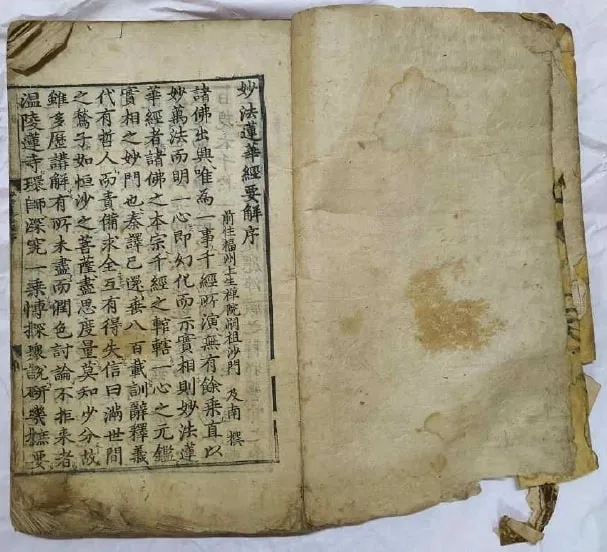 妙法蓮華經要解序
前住福州上生禪院嗣祖沙門 及南 撰
諸佛出興唯為一事千經所演無有餘乘直以
妙萬法而明一心即幻化而示實相則妙法蓮
華經者諸佛之本宗千經之輨轄一心之元鑑
實相之妙門也秦譯已還垂八百載訓辭釋義
代有哲人而責備求全互有得失信曰滿世間
之鶖子如恒沙之菩薩盡思度量莫知少分故
雖多歷講解有所未盡而潤色討論不拒來者
温陵蓮寺環師深究一乘愽探衆說研幾摭要